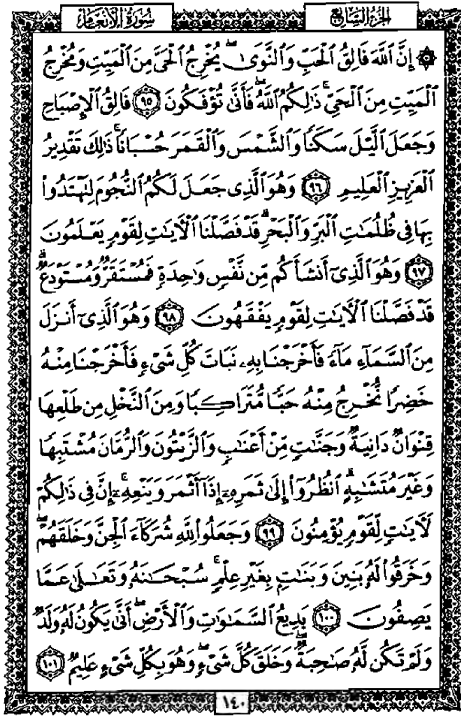 الجزء السابع
سورة الأنعام
۞ إِنَّ ٱللَّهَ فَالِقُ ٱلْحَبِّ وَٱلنَّوَىٰ ۖ يُخْرِجُ ٱلْحَيَّ مِنَ ٱلْمَيِّتِ وَمُخْرِجُ
ٱلْمَيِّتِ مِنَ ٱلْحَيِّ ۚ ذَٰلِكُمُ ٱللَّهُ ۖ فَأَنَّىٰ تُؤْفَكُونَ ٩٥ فَالِقُ ٱلْإِصْبَاحِ
وَجَعَلَ ٱلَّيْلَ سَكَنًا وَٱلشَّمْسَ وَٱلْقَمَرَ حُسْبَانًا ۚ ذَٰلِكَ تَقْدِيرُ
ٱلْعَزِيزِ ٱلْعَلِيمِ ٩٦ وَهُوَ ٱلَّذِي جَعَلَ لَكُمُ ٱلنُّجُومَ لِتَهْتَدُوا۟
بِهَا فِي ظُلُمَٰتِ ٱلْبَرِّ وَٱلْبَحْرِ ۗ قَدْ فَصَّلْنَا ٱلْآيَٰتِ لِقَوْمٍ يَعْلَمُونَ
٩٧ وَهُوَ ٱلَّذِيٓ أَنشَأَكُم مِّن نَّفْسٍ وَٰحِدَةٍ فَمُسْتَقَرٌّ وَمُسْتَوْدَعٌ ۗ
قَدْ فَصَّلْنَا ٱلْآيَٰتِ لِقَوْمٍ يَفْقَهُونَ ٩٨ وَهُوَ ٱلَّذِيٓ أَنزَلَ
مِنَ ٱلسَّمَآءِ مَآءً فَأَخْرَجْنَا بِهِۦ نَبَاتَ كُلِّ شَيْءٍ فَأَخْرَجْنَا مِنْهُ
خَضِرًا نُّخْرِجُ مِنْهُ حَبًّا مُّتَرَاكِبًا وَمِنَ ٱلنَّخْلِ مِن طَلْعِهَا
قِنْوَانٌ دَانِيَةٌ وَجَنَّٰتٍ مِّنْ أَعْنَابٍ وَٱلزَّيْتُونَ وَٱلرُّمَّانَ مُشْتَبِهًا
وَغَيْرَ مُتَشَٰبِهٍ ۗ ٱنظُرُوٓا۟ إِلَىٰ ثَمَرِهِۦٓ إِذَآ أَثْمَرَ وَيَنْعِهِۦٓ ۚ إِنَّ فِي ذَٰلِكُمْ
لَآيَٰتٍ لِّقَوْمٍ يُؤْمِنُونَ ٩٩ وَجَعَلُوا۟ لِلَّهِ شُرَكَآءَ ٱلْجِنَّ وَخَلَقَهُمْ ۖ
وَخَرَقُوا۟ لَهُۥ بَنِينَ وَبَنَٰتٍۭ بِغَيْرِ عِلْمٍ ۚ سُبْحَٰنَهُۥ وَتَعَٰلَىٰ عَمَّا
يَصِفُونَ ١٠٠ بَدِيعُ ٱلسَّمَٰوَٰتِ وَٱلْأَرْضِ ۖ أَنَّىٰ يَكُونُ لَهُۥ وَلَدٌ
وَلَمْ تَكُن لَّهُۥ صَٰحِبَةٌ ۖ وَخَلَقَ كُلَّ شَيْءٍ ۖ وَهُوَ بِكُلِّ شَيْءٍ عَلِيمٌ ١٠١
١٤٠